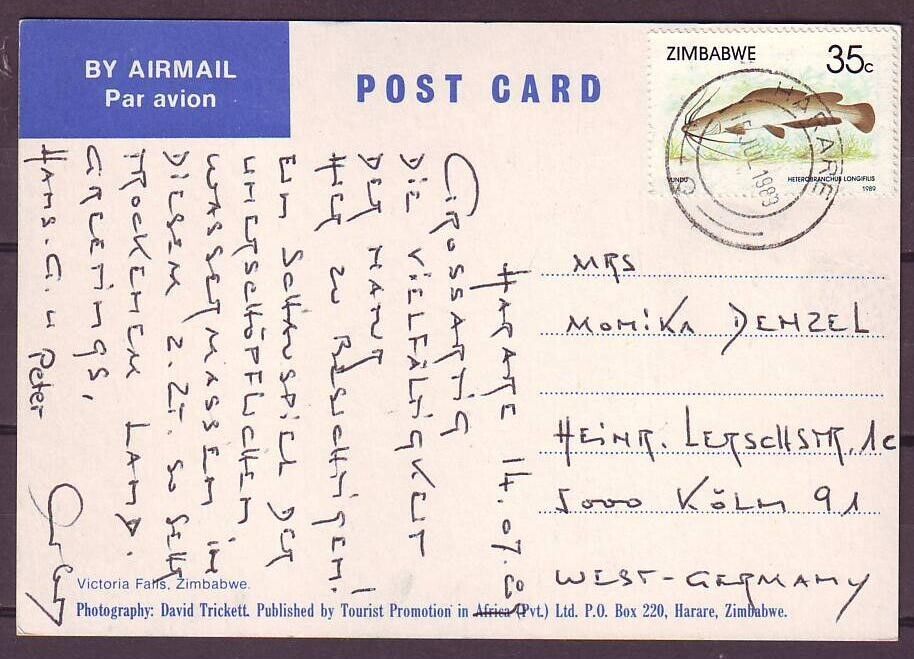 BY AIRMAIL
Par avion
POST CARD
ZIMBABWE 35c
HETEROBRANCHUS LONGIFILIS
1989
HARARE
JUL 1989
HARARE 14.07.89
GROSSARTIG
DIE VIELFÄLTIGKEIT
DER HAND
HIER ZU BESICHTIGEN!
EIN SCHAUSPIEL DER
UNERSCHÖPFLICHEN
WASSERMASSEN IN
DIESEM Z.ZT. SO SEHR
TROCKENEM LAND.
GREETINGS,
HANS.G. U Peter
MRS
MONIKA DENZEL
HEINR. LERSCHSTR. 1c
5000 KÖLN 91
WEST-GERMANY
Victoria Falls, Zimbabwe.
Photography: David Trickett. Published by Tourist Promotion in Africa (Pvt.) Ltd. P.O. Box 220, Harare, Zimbabwe.